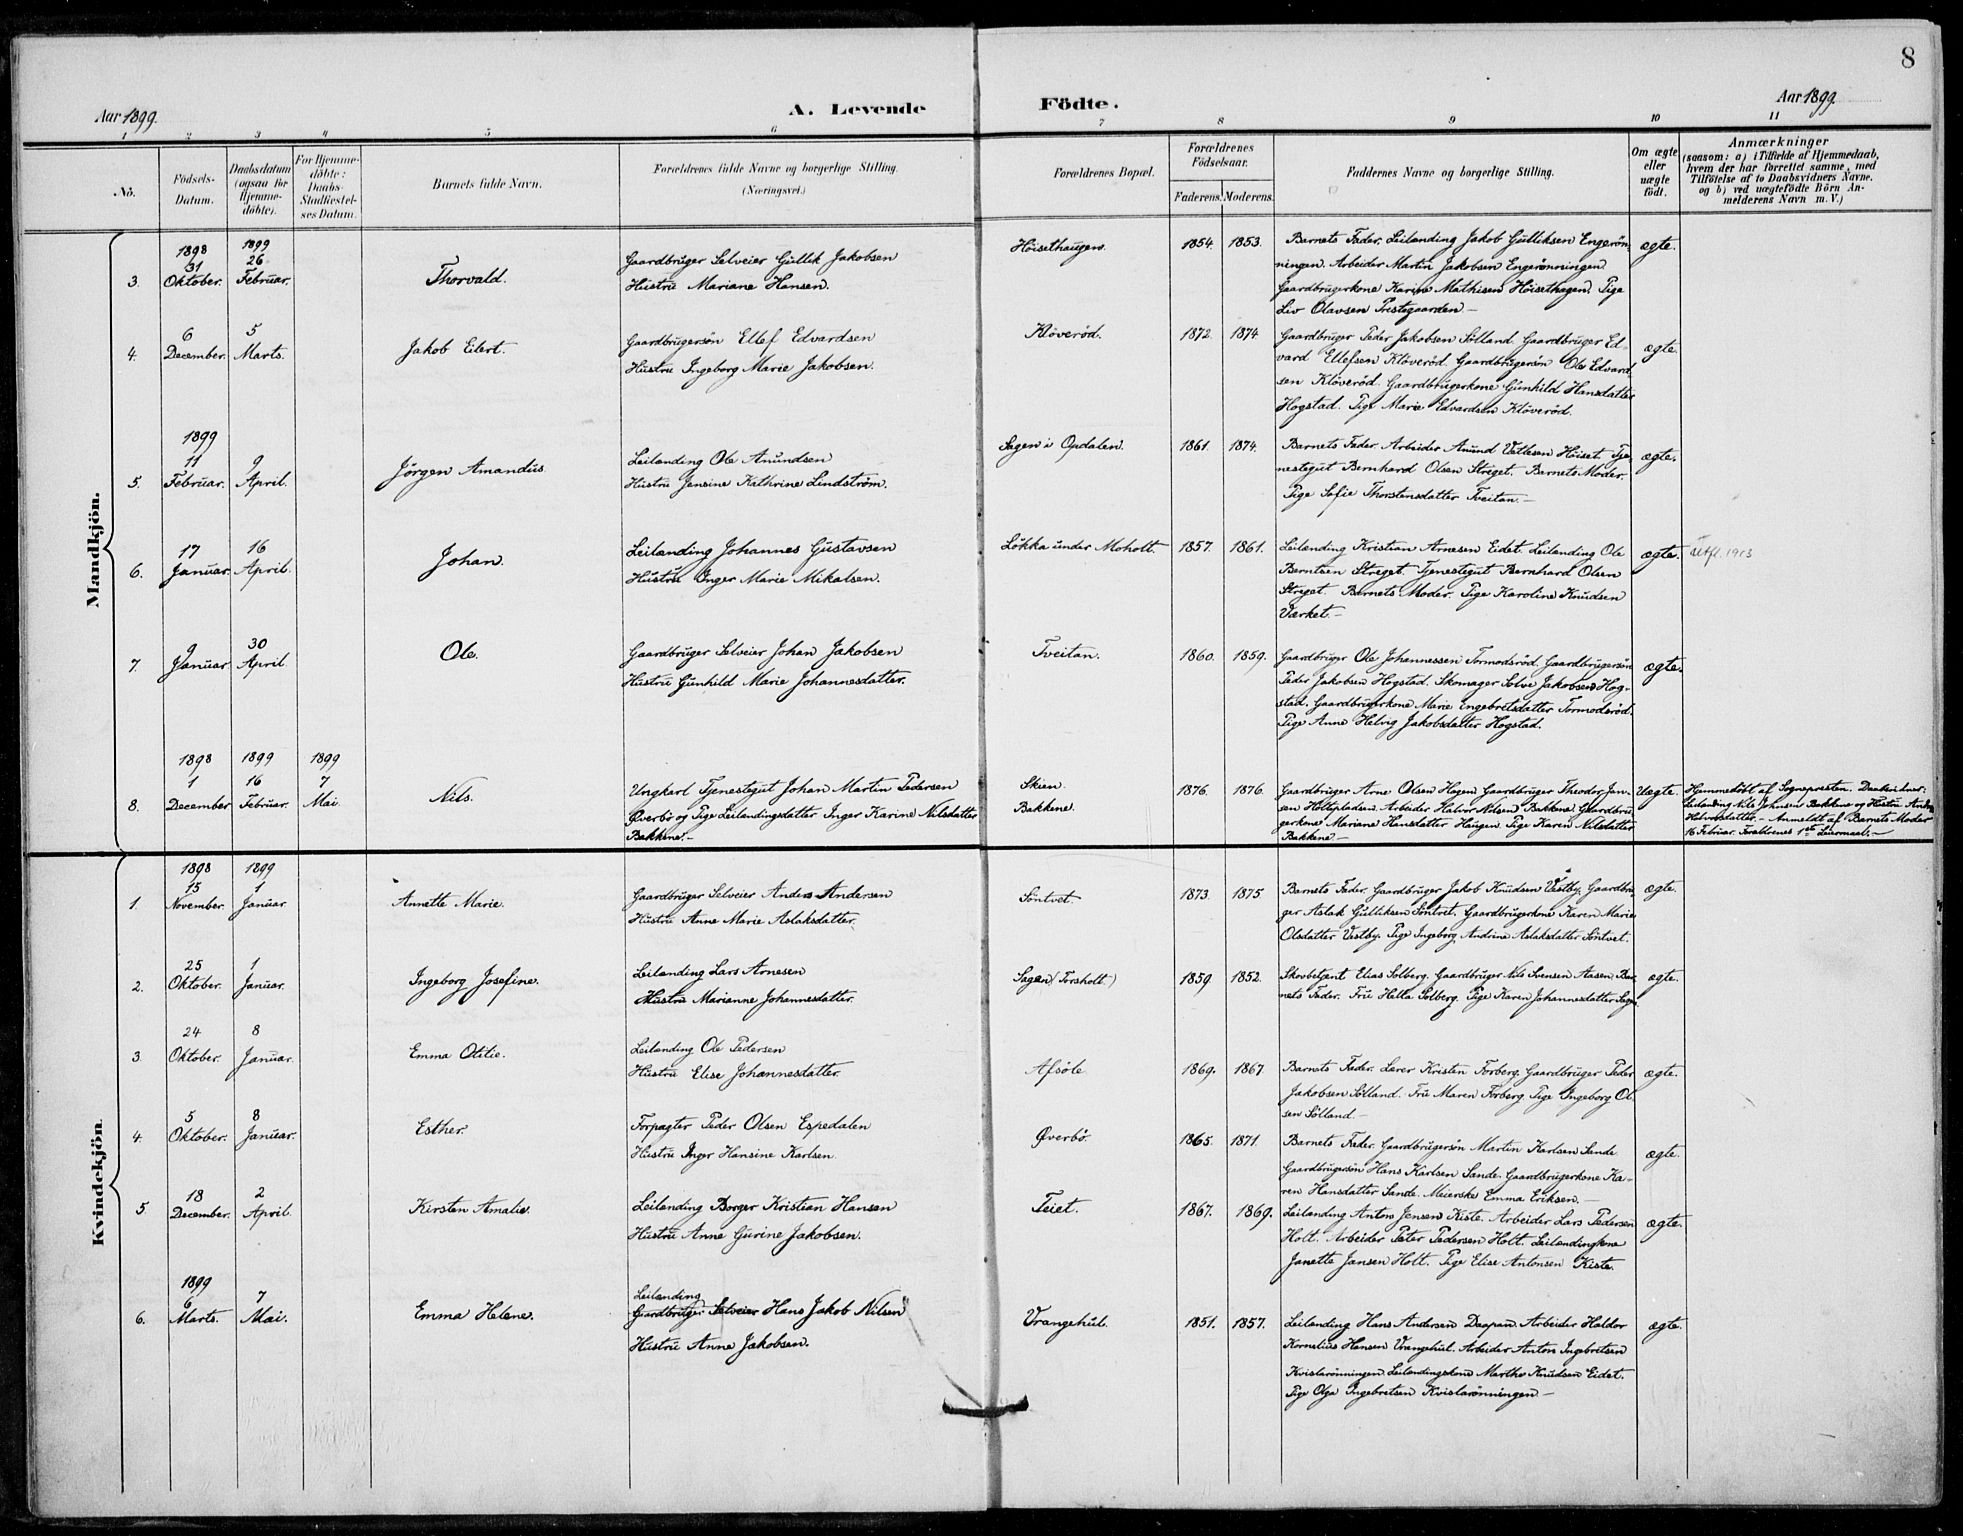 8
Aar 1899.
A. Levende Födte.
Aar 1899
1 2 3 4 5 6 7 8 9 10 11
No.
Födsels-Datum.
Daabsdatum (ogsaa for Hjemme-döbte).
For Hjemme-döbte: Daabs-Stadfæstel-ses Datum.
Barnets fulde Navn.
Forældrenes fulde Navne og borgerlige Stilling. (Næringsvei.)
Forældrenes Bopæl.
Forældrenes Födselsaar.
Faderens. Moderens.
Faddernes Navne og borgerlige Stilling.
Om ægte eller uægte födt.
Anmærkninger
(saasom: a) i Tilfælde af Hjemmedaab,
hvem der har forrettet samme, med
Tilföielse af to Daabsvidners Navne,
og b) ved uægtefödte Börn An-
melderens Navn m. V.)
Mandkjön.
3. 1898 31 Oktober. 1899 26 Februar. Thorvald.
Gaardbruger Selveier Gullik Jakobsen
Hustru Mariane Hansen.
Höisethaugen. 1854. 1853.
Barnets Fader. Leilænding Jakob Gulliksen Engerön-
ningen. Arbeider Martin Jakobsen Engerönningen.
Gaardbrugerkone Karine Mathisen Höisethagen. Pige
Liv Olavsen Prestegaarden –
ægte.
4. 6 December. 5 Marts. Jakob Eilert.
Gaardbrugersön Ellef Edvardsen
Hustru Ingeborg Marie Jakobsen.
Klöveröd. 1872. 1874.
Gaardbruger Peder Jakobsen Sölland. Gaardbruger Ed-
vard Ellefsen Klöveröd. Gaardbrugersön Ole Edvard-
sen Klöveröd. Gaardbrugerkone Gunhild Hansdatter
Hogstad. Pige Marie Edvardsen Klöveröd.
ægte.
5. 1899 11 Februar. 9 April. Jörgen Amandus
Leilænding Ole Anundsen
Hustru Jensine Kathrine Lindström.
Sagen i Opdalen. 1861. 1874.
Barnets Fader. Arbeider Anund Vetlesen Höiset. Tje-
nestegut Bernhard Olsen Streget. Barnets Moder.
Pige Sofie Thorstensdatter Tveitan. –
ægte.
6. 17 Januar. 16 April. Johan.
Leilænding Johannes Gustavsen
Hustru Inger Marie Mikalsen.
Lökka under Moholt. 1857. 1861.
Leilænding Kristian Arnesen Eidet. Leilænding Ole
Berntsen Streget. Tjenestegut Bernhard Olsen
Streget. Barnets Moder. Pige Karoline Knudsen
Værket. –
ægte. utfl. 1913
7. 9 Januar 30 April Ole.
Gaardbruger Selveier Johan Jakobsen
Hustru Gunhild Marie Johannesdatter.
Tveitan. 1860. 1859.
Gaardbruger Ole Johannessen Tormodsröd. Gaardbrugersön
Peder Jakobsen Hogstad. Skomager Solve Jakobsen Hog-
stad. Gaardbrugerkone Marie Engebretsdatter Tormodsröd.
Pige Anne Helvig Jakobsdatter Hogstad.
ægte.
8. 1898 1 December 1899 16 Februar. 1899 7 Mai. Nils.
Ungkarl Tjenestegut Johan Martin Pedersen
Överbö og Pige Leilændingsdatter Inger Karine Nilsdatter
Bakkene. –
Skien. Bakkene. 1876. 1876.
Gaardbruger Arne Olsen Hagen Gaardbruger Theodor Jan-
sen Holtepladsen. Arbeider Halvor Nilsen Bakkene. Gaardbru-
gerkone Mariane Hansdatter Haugen. Pige Karen Nilsdatter
Bakkene. –
Uægte.
Hjemmedöbt af Sognepresten. Daabsvidner:
Leilænding Nils Johnsen Bakkene og Hustru
Halvorsdatter. – Anmeldt af Barnets Moder
16 Februar. Forældrenes 1ste Leiermaal. –
Kvindekjön.
1. 1898 15 November. 1899 1 Januar Annette Marie.
Gaardbruger Selveier Anders Andersen
Hustru Anne Marie Aslaksdatter.
Söntvet. 1873. 1875.
Barnets Fader. Gaardbruger Jakob Knudsen Vestby. Gaardbru-
ger Aslak Gulliksen Söntvet. Gaardbrugerkone Karen Marie
Olsdatter Vestby. Pige Ingeborg Andrine Aslaksdatter Söntvet.
ægte.
2. 25 Oktober. 1 Januar. Ingeborg Josefine.
Leilænding Lars Arnesen
Hustru Marianne Johannesdatter.
Sagen (Torsholt.) 1859 1852.
Skovbetjent Elias Solberg. Gaardbruger Nils Svensen Aasen. Bar-
nets Fader. Fru Hella Solberg. Pige Karen Johannesdatter Sagen.
ægte.
3. 24 Oktober. 8 Januar. Emma Otilie.
Leilænding Ole Pedersen
Hustru Elise Johannesdatter.
Afsöte 1869. 1867
Barnets Fader. Lærer Kristen Forberg. Gaardbruger Peder
Jakobsen Sölland. Fru Maren Forberg. Pige Ingeborg Ol-
sen Sölland. –
ægte.
4. 5 Oktober. 8 Januar. Esther.
Forpagter Peder Olsen Espedalen
Hustru Inger Hansine Karlsen.
Överbö. 1865. 1871.
Barnets Fader. Gaardbrugersön Martin Karlsen Sande
Gaardbrugersön Hans Karlsen Sande. Gaardbrugerkone Ka-
ren Hansdatter Sande. Meierske Emma Eriksen. –
ægte.
5 18 December. 2 April. Kirsten Amalie.
Leilænding Borger Kristian Hansen
Hustru Anne Gurine Jakobsen.
Teiet. 1867. 1869.
Leilænding Anton Jensen Kiste. Arbeider Lars Pedersen
Holt. Arbeider Peter Pedersen Holt. Leilændingkone
Janette Jansen Holt. Pige Elise Antonsen Kiste.
ægte.
6. 1899 6 Marts. 7 Mai. Emma Helene.
Leilænding
Gaardbruger Selveier Hans Jakob Nilsen
Hustru Anne Jakobsen.
Vrangehul. 1851. 1857.
Leilænding Hans Andersen Daapan. Arbeider Haldor
Kornelius Hansen Vrangehul. Arbeider Anton Ingebritsen
Kvislarönningen. Leilændingskone Marthe Knudsen Eidet.
Pige Olga Ingebretsen Kvislarönningen –
ægte.